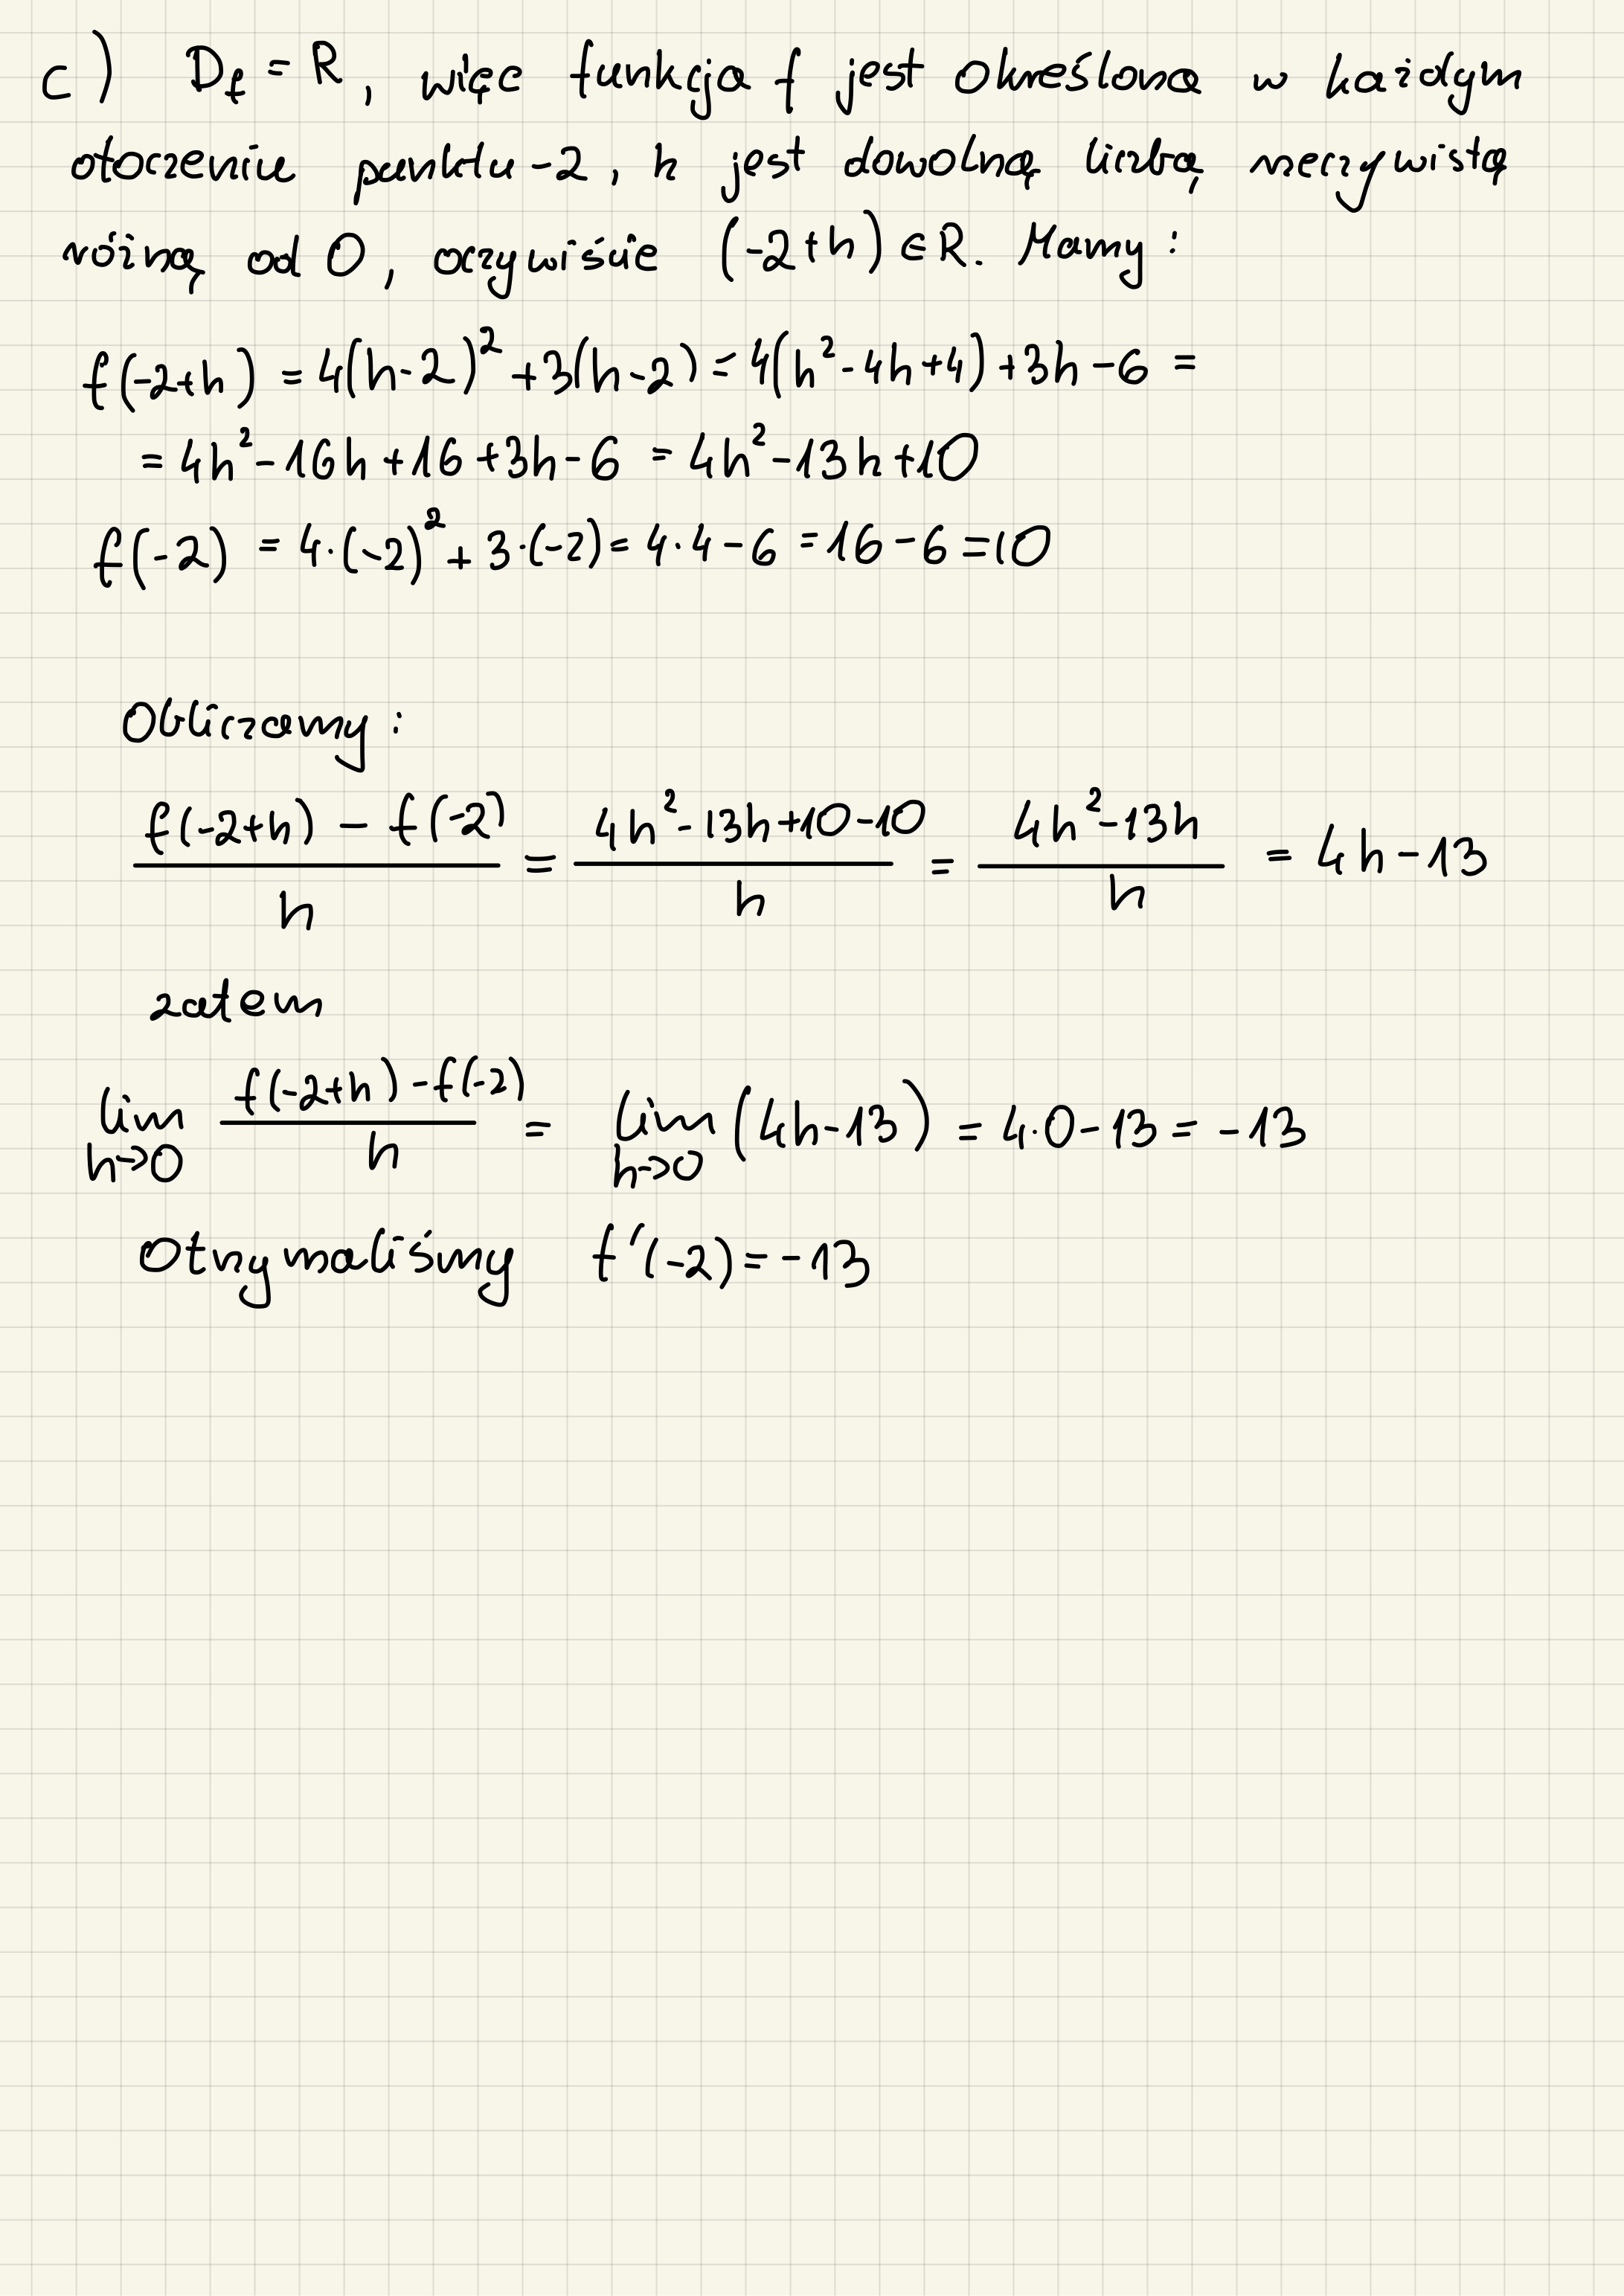 c) D_f = R, więc funkcja f jest określona w każdym
otoczeniu punktu -2, h jest dowolną liczbą rzeczywistą
różną od 0, oczywiście (-2+h) ∈ R. Mamy:
f(-2+h) = 4(h-2)² + 3(h-2) = 4(h² - 4h + 4) + 3h - 6 =
= 4h² - 16h + 16 + 3h - 6 = 4h² - 13h + 10
f(-2) = 4·(-2)² + 3·(-2) = 4·4 - 6 = 16 - 6 = 10
Obliczamy:
(f(-2+h) - f(-2))/h = (4h² - 13h + 10 - 10)/h = (4h² - 13h)/h = 4h - 13
zatem
lim h→0 (f(-2+h) - f(-2))/h = lim h→0 (4h - 13) = 4·0 - 13 = -13
Otrzymaliśmy f'(-2) = -13